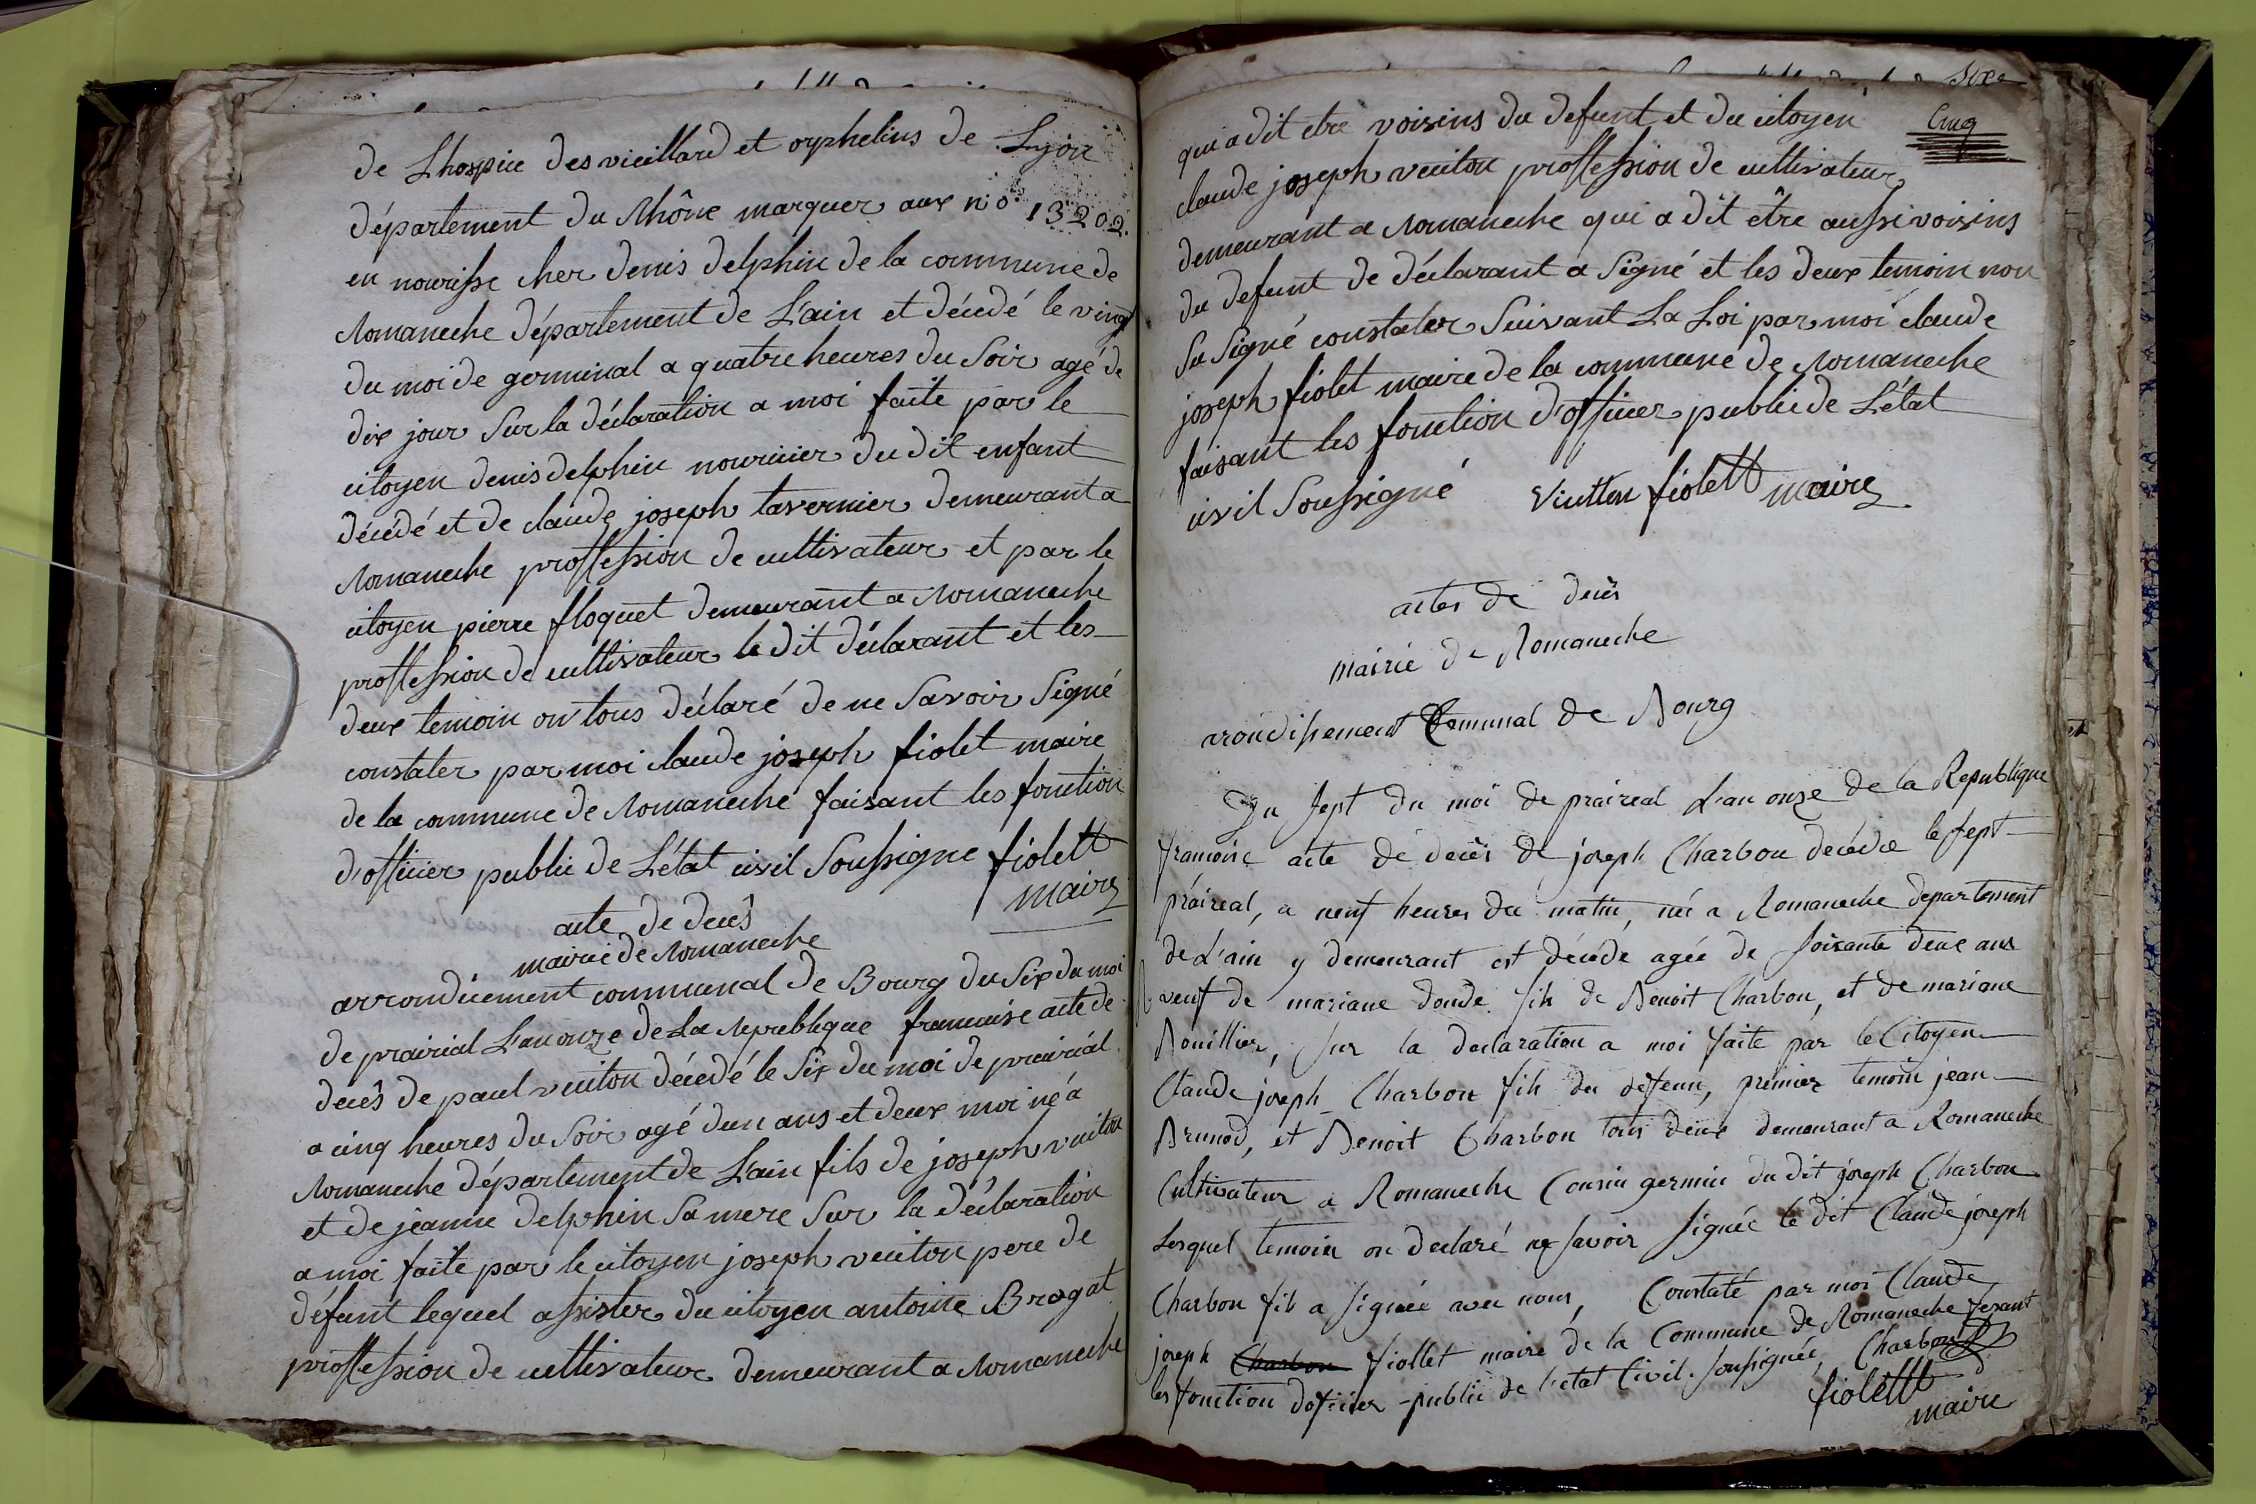 de Lhospice des vieillard et orphelins de Lyon
département du Rhône marquer aux n.o. 13202.
en nourisse cher denis delphin de la commune de
Romaneche département de L'ain et décédé le vingt
du moi de germinal a quatre heures du Soir agé de
dix jour Sur la déclaration a moi faite par le
citoyen denis delphin nouricier du dit enfant
décédé et de claude joseph tavernier demeurant a
Romaneche proffession de cultivateur et par le
citoyen pierre floquet demeurant a Romaneche
proffession de cultivateur le dit déclarant et les
deux temoin on tous déclaré de ne Savoir Signé
constater par moi claude joseph fiolet maire
de la commune de Romaneche faisant les fonction
d'officier public de L'état civil Soussigne fiolett
maire
acte de decês
mairie de Romaneche
arrondicement communal de Bourg du Six du moi
de prairial L'an onze de La Republique francaise acte de
decês de paul vuiton décédé le Six du moi de prairial
a cinq heures du Soir agé dun ans et deux moi né a
Romaneche département de L'ain fils de joseph vuiton
et de jeanne delphin Sa mere Sur la déclaration
a moi faite par le citoyen joseph vuiton pere de
défunt lequel assister du citoyen antoine Brogat
proffession de cultivateur demeurant a Romaneche
Six
Cinq
qui a dit etre voisins du defunt et du citoyen
claude joseph vuiton proffession de cultivateur
demeurant a Romaneche qui a dit être aussi voisins
du defunt de déclarant a Signé et les deux temoin non
Su Signé constater Suivant La Loi par moi claude
joseph fiolet maire de la commune de Romaneche
faisant les fonction d'officer public de L'état
civil Soussigné Viutton fiolett maire
actes de decês
mairie de Romaneche
arondissement Comunal de Bourg
Du Sept du moi de praireal L'an onze de la Republique
francoise acte de decês de joseph Charbon décédée le sept
praireal, a neuf heures du matin, née a Romaneche departement
de L'ain y demeurant est décédé agée de soisante deux ans
veuf de mariane donde fils de Benoit Charbon, et de mariane
Bouillier, sur la declaration a moi faite par le Citoyen
Claude joseph Charbon fils du defunt, premier temoin jean
Brunod, et Benoit Charbon tous deux demeurant a Romaneche
Cultivateur a Romaneche Cousin germin du dit joseph Charbon
Lesquel temoin on declaré ne savoir signée le dit Claude joseph
Charbon fils a signée avec nous, Constaté par moi Claude
joseph Charbon fiollet maire de la Commune de Romaneche fesant
les fonction doficier public de l'etat Civil sousignée, Charbon
fiolett
maire